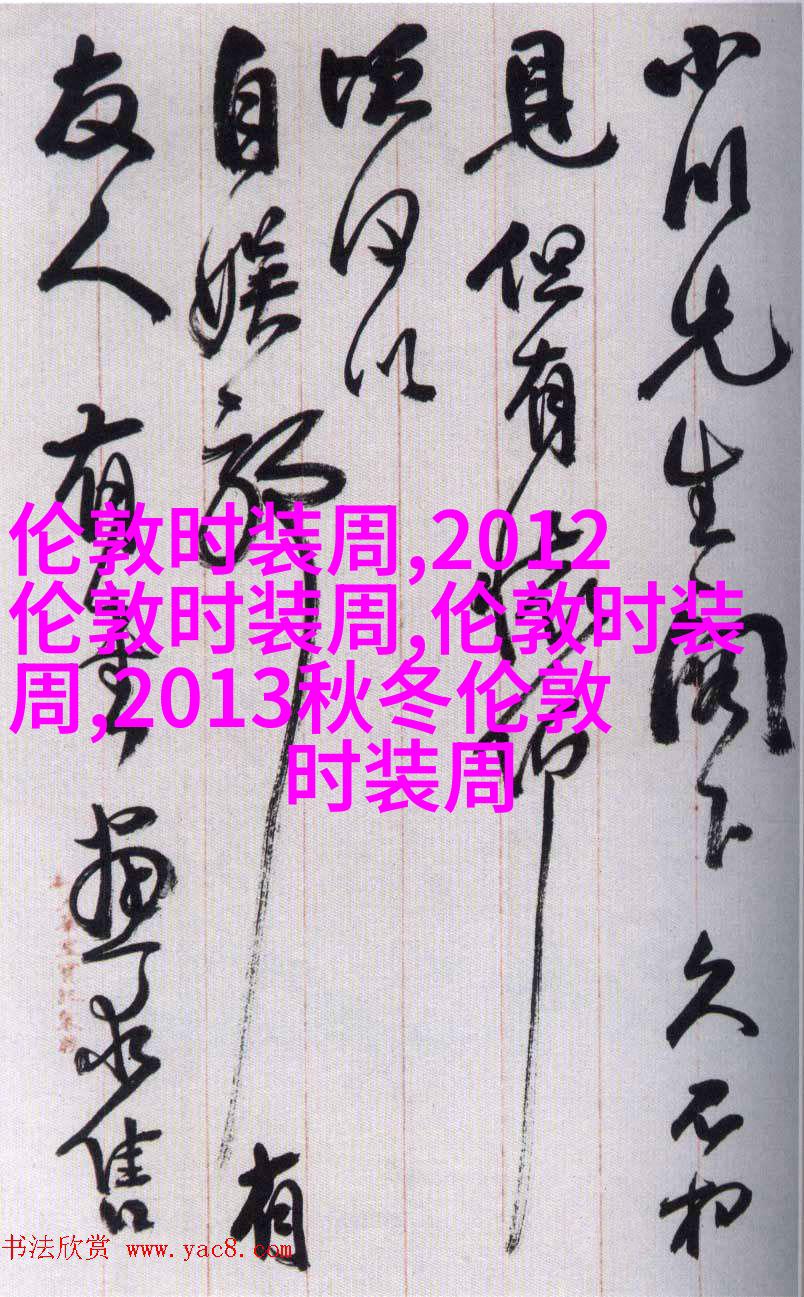 小川先生閣下久不相
見但有懷仰
何以
自娱耶有
友人有畫求售
伦敦时装周,2012
伦敦时装周,伦敦时装
周,2013秋冬伦敦
时装周
书法欣赏 www.yac8.com